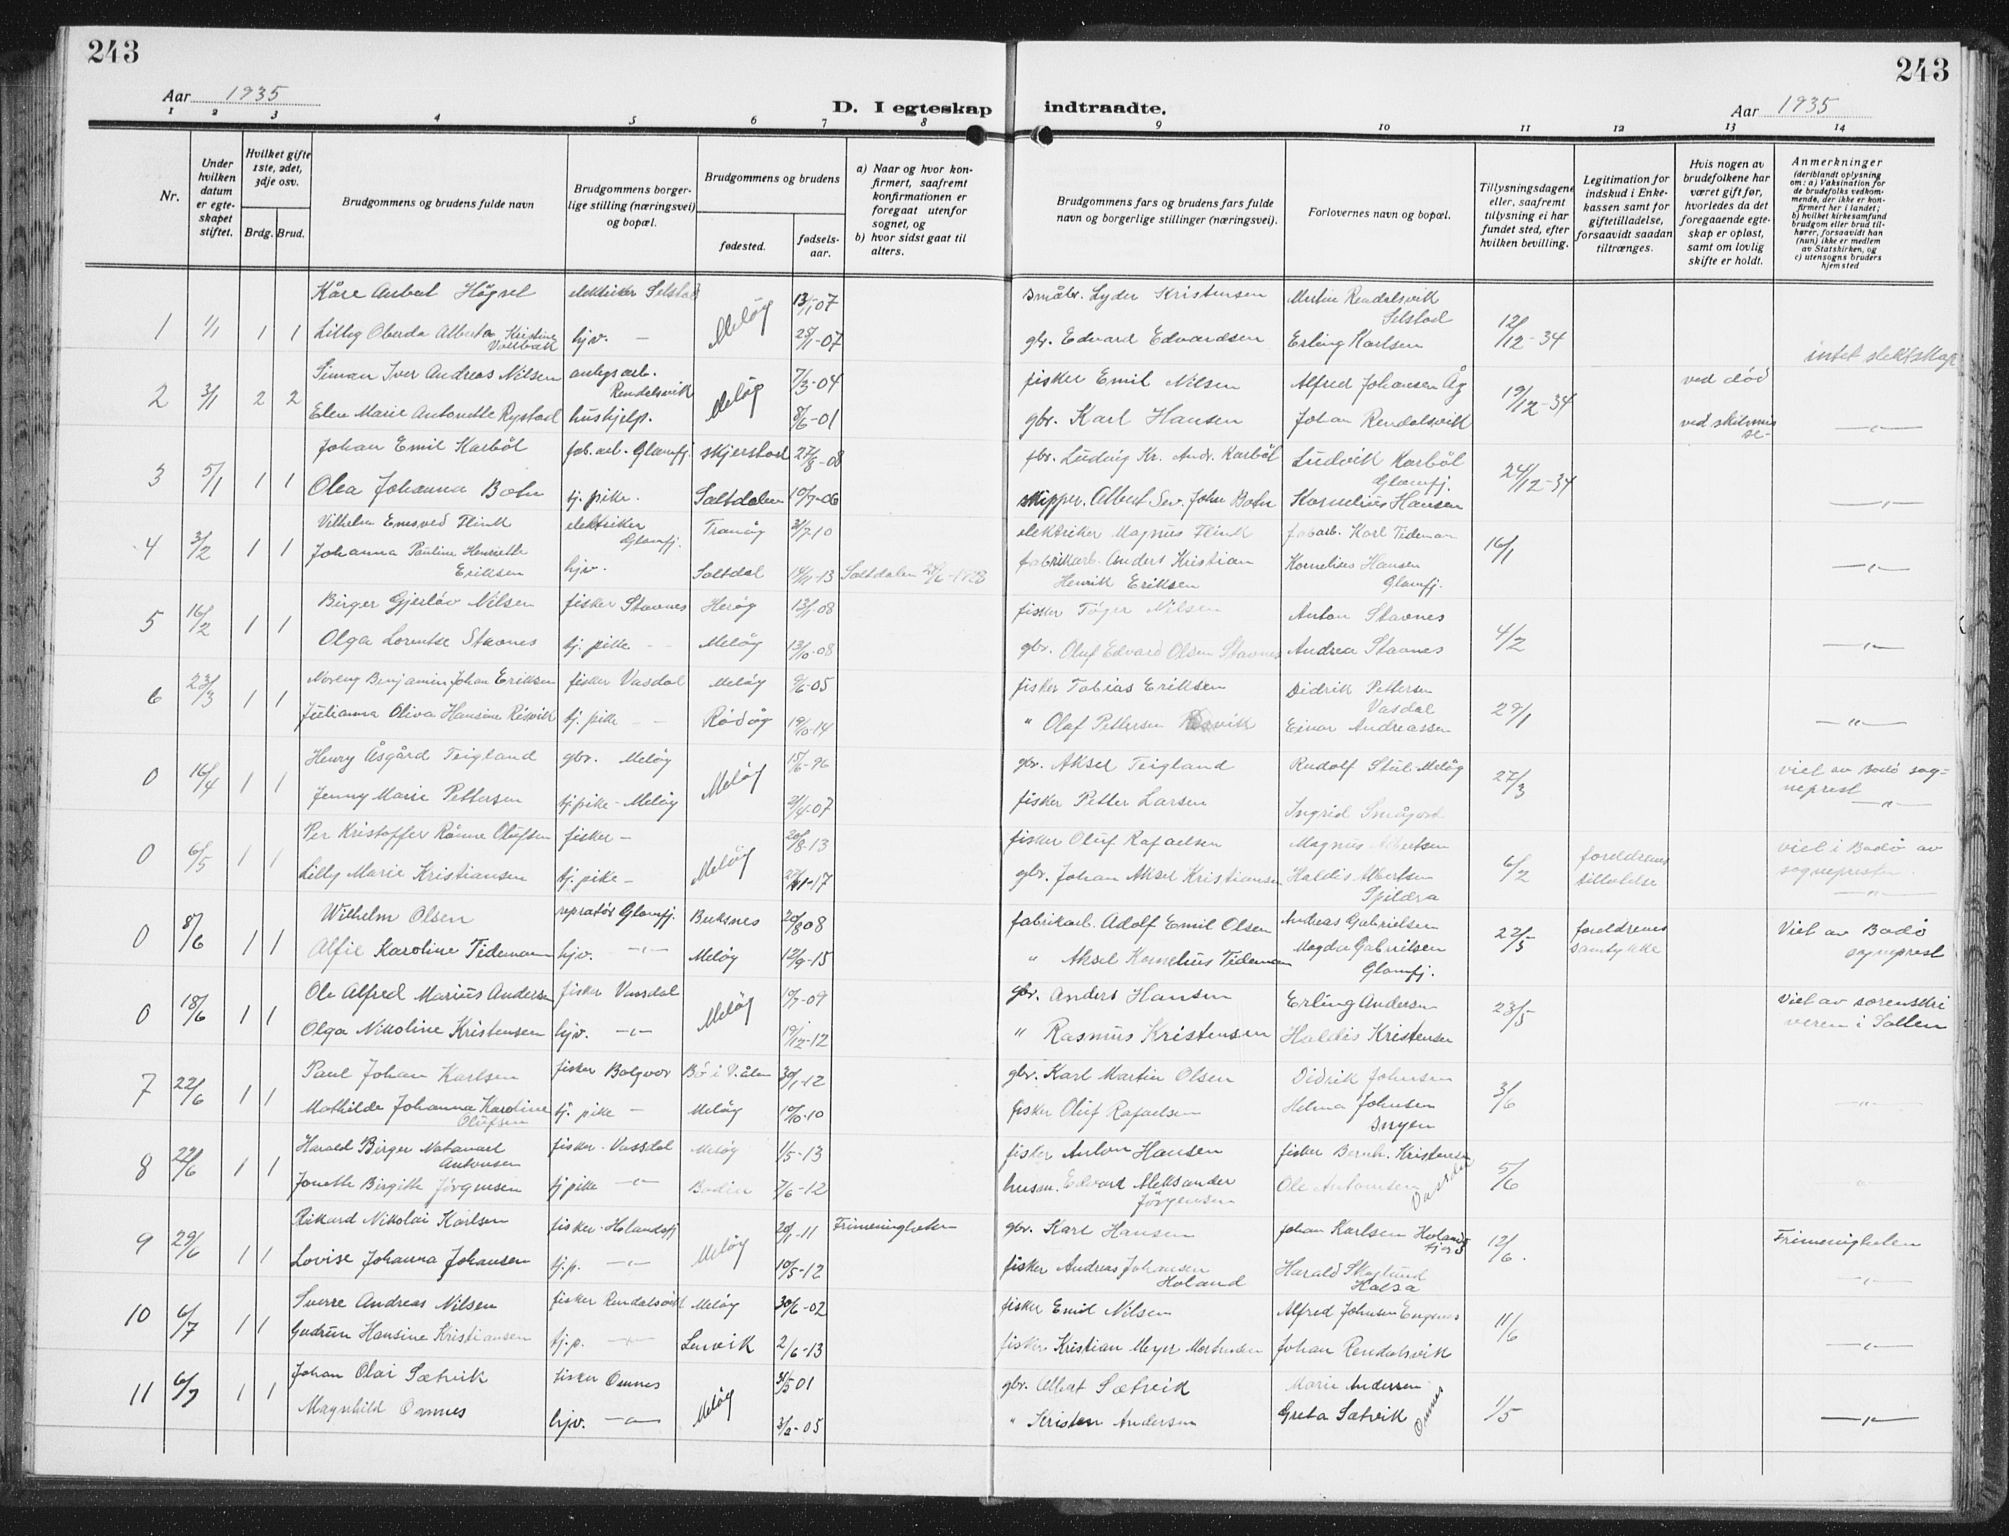 243
243
Aar 1935
D. I egteskap indtraadte.
Aar 1935
1 2 3 4 5 6 7 8 9 10 11 12 13 14
Nr.
Under hvilken datum er egteskapet stiftet.
Hvilket gifte 1ste, 2det, 3dje osv.
Brdg. Brud.
Brudgommens og brudens fulde navn
Brudgommens borgerlige stilling (næringsvei) og bopæl.
Brudgommens og brudens
fødested.
fødselsaar.
a) Naar og hvor konfirmert, saafremt konfirmationen er foregaat utenfor sognet, og
b) hvor sidst gaat til alters.
Brudgommens fars og brudens fars fulde navn og borgerlige stillinger (næringsvei).
Forlovernes navn og bopæl.
Tillysningsdagene eller, saafremt tillysning ei har fundet sted, efter hvilken bevilling.
Legitimation for indskud i Enkekassen samt for giftetilladelse, forsaavidt saadan tiltrænges.
Hvis nogen av brudefolkene har været gift før, hvorledes da det foregaaende egteskap er opløst, samt om lovlig skifte er holdt.
Anmerkninger
(deriblandt oplysning om: a) Vaksination for de brudefolks vedkommende, der ikke er konfirmert her i landet; b) hvilket kirkesamfund brudgom eller brud tilhører, forsaavidt han (hun) ikke er medlem av Statskirken, og c) utensogns bruders hjemsted
Kåre Høgset elektriker Selstad 13/1 07 småbr. Lyder Kristensen Martin Rendalsvik Selstad
1 1/1 1 1 Lilly Oberda Alberta Kristine hjv. — Meløy 07 gbr. Edvard Edvardsen Erling Karlsen 12/12-34 intet slektskap
Simon Iver Andreas Nilsen anlegsarb. Rendalsvik 7/3-04 fisker Emil Nilsen Alfred Johansen Åg ved död
2 3/1 2 2 Elen Marie Antonette Rystad hushjelp. Meløy 8/6-01 gbr. Karl Hansen Johan Rendalsvik 19/12-34 ved skilmisse — " —
Johan Emil Karböl fab. arb. Glomfj. Skjerstad 27/8-08 fbr. Ludvig Kr. Andr. Karböl Ludvik Karböl Glomfj.
3 5/1 1 1 Olea Johanna Botn tj. pike. Saltdalen 10/7-06 skipper. Albert Sev. Johs Botn Kornelius Hansen 24/12-34 — " —
Vilhelm Flink elektriker Glomfj. Tranöy 3/7-10 elektriker Magnus Flink fabarb. Karl Tideman
4 3/2 1 1 Johanna Pauline Henriette Eriksen hjv. Saltdal 14/11-13 Saltdalen 1928 fabrikarb. Anders Kristian Henrik Eriksen Kornelius Hansen Glomfj. 16/1 — " —
Birger Gjerlöv Nilsen fisker Stavnes Heröy 13/1-08 fisker Töger Nilsen Anton Stavnes
5 16/2 1 1 Olga Lorentse Stavnes tj. pike — Melöy 13/10-08 gbr. Oluf Edvard Olsen Stavnes Andrea Stavnes 4/2 — " —
Benjamin Johan Eriksen fisker Vasdal Melöy 9/6-05 fisker Tobias Eriksen Didrik Pettersen Vasdal
6 23/3 1 1 Julianna Oliva Hansine Risvik tj. pike — Rödöy 19/10-14 " Olaf Pettersen Einar Andreassen 29/1 — " —
Henry Åsgård Teigland gbr. Melöy 15/6-96 gbr. Aksel Teigland Rudolf Stül Melöy viet av Bodö sogneprest
0 16/4 1 1 Jenny Marie Pettersen tj. pike - Melöy Melöy 21/4-07 fisker Petter Larsen Ingrid 27/3 — " —
Per Kristoffer Rönne Olufsen fisker — 20/8-13 fisker Oluf Rafaelsen Magnus Albertsen viet i Bodö av sognepresten.
0 6/5 1 1 Lilly Marie Kristiansen tj. pike — Melöy 17 gbr. Johan Aksel Kristiansen Haldis Albertsen Spildra 6/2 foreldrenes tillatelse — " —
Wilhelm Olsen Glomfj. Buksnes 20/8 08 fabrikarb. Adolf Emil Olsen Andreas Gabrielsen foreldrenes Viet av Bodö
0 8/6 1 1 Alfie Karoline Tidemann hjv. — " — Melöy 12/9-15 " Aksel Kornelius Tideman Magda Gabrielsen Glomfj. 22/5 samtykke sogneprest
Ole Alfred Marius Andersen fisker Vassdal 10/7-09 gbr. Anders Hansen Erling Andersen Viet av sorenskri
0 18/6 1 1 Olga Nikoline Kristensen hjv. — " — Melöy 19/12-12 " Rasmus Kristensen Haldis Kristensen 23/5 veren i Salten
Paul Johan Karlsen fisker Bolgvær Bö i V.ålen 30/1-12 gbr. Karl Martin Olsen Didrik Johnsen
7 22/6 1 1 Mathilde Johanna Karoline Olufsen tj. pike — Melöy 10/10-10 fisker Oluf Rafaelsen Helma Johnsen 3/6 — " —
Harald Birger Natanael Antonsen fisker - Vassdal Melöy 1/5-13 fisker Anton Hansen fisker Bernh. Kristensen
8 22/6 1 1 Jonette Birgitte Jörgensen tj pike — " — Bodin 7/6-12 husm. Edvard Aleksander Jörgensen Ole Antonsen Vassdal 5/6 — " —
Rikard Nikolai Karlsen fisker - Holandsfj 20/1-11 Frimenigheten gbr. Karl Hansen Johan Karlsen Holandsfjord Frimenigheten
9 29/6 1 1 Lovise Johanna Johansen tj.p. — " — Melöy 10/5-12 fisker Andreas Johansen Holand Harald Skoglund Halsa 12/6. — " —
Sverre Andreas Nilsen fisker Rendalsvik Melöy 30/6-02 fisker Emil Nilsen Alfred Johnsen
10 6/7 1 1 Gudrun Hansine Kristiansen tj.p. — " — Lenvik 2/6-13 fisker Kristian Meyer Johan Rendalsvik 11/6 — " —
Johan Olai Sætvik fisker Ornes 31/5 01 gbr. Albert Sætvik Marie Andersen
11 6/7 1 1 Magnhild Ornes hjv. — " — Melöy 05 " Kristen Andersen Greta Sætvik Ornes 1/5 — " —